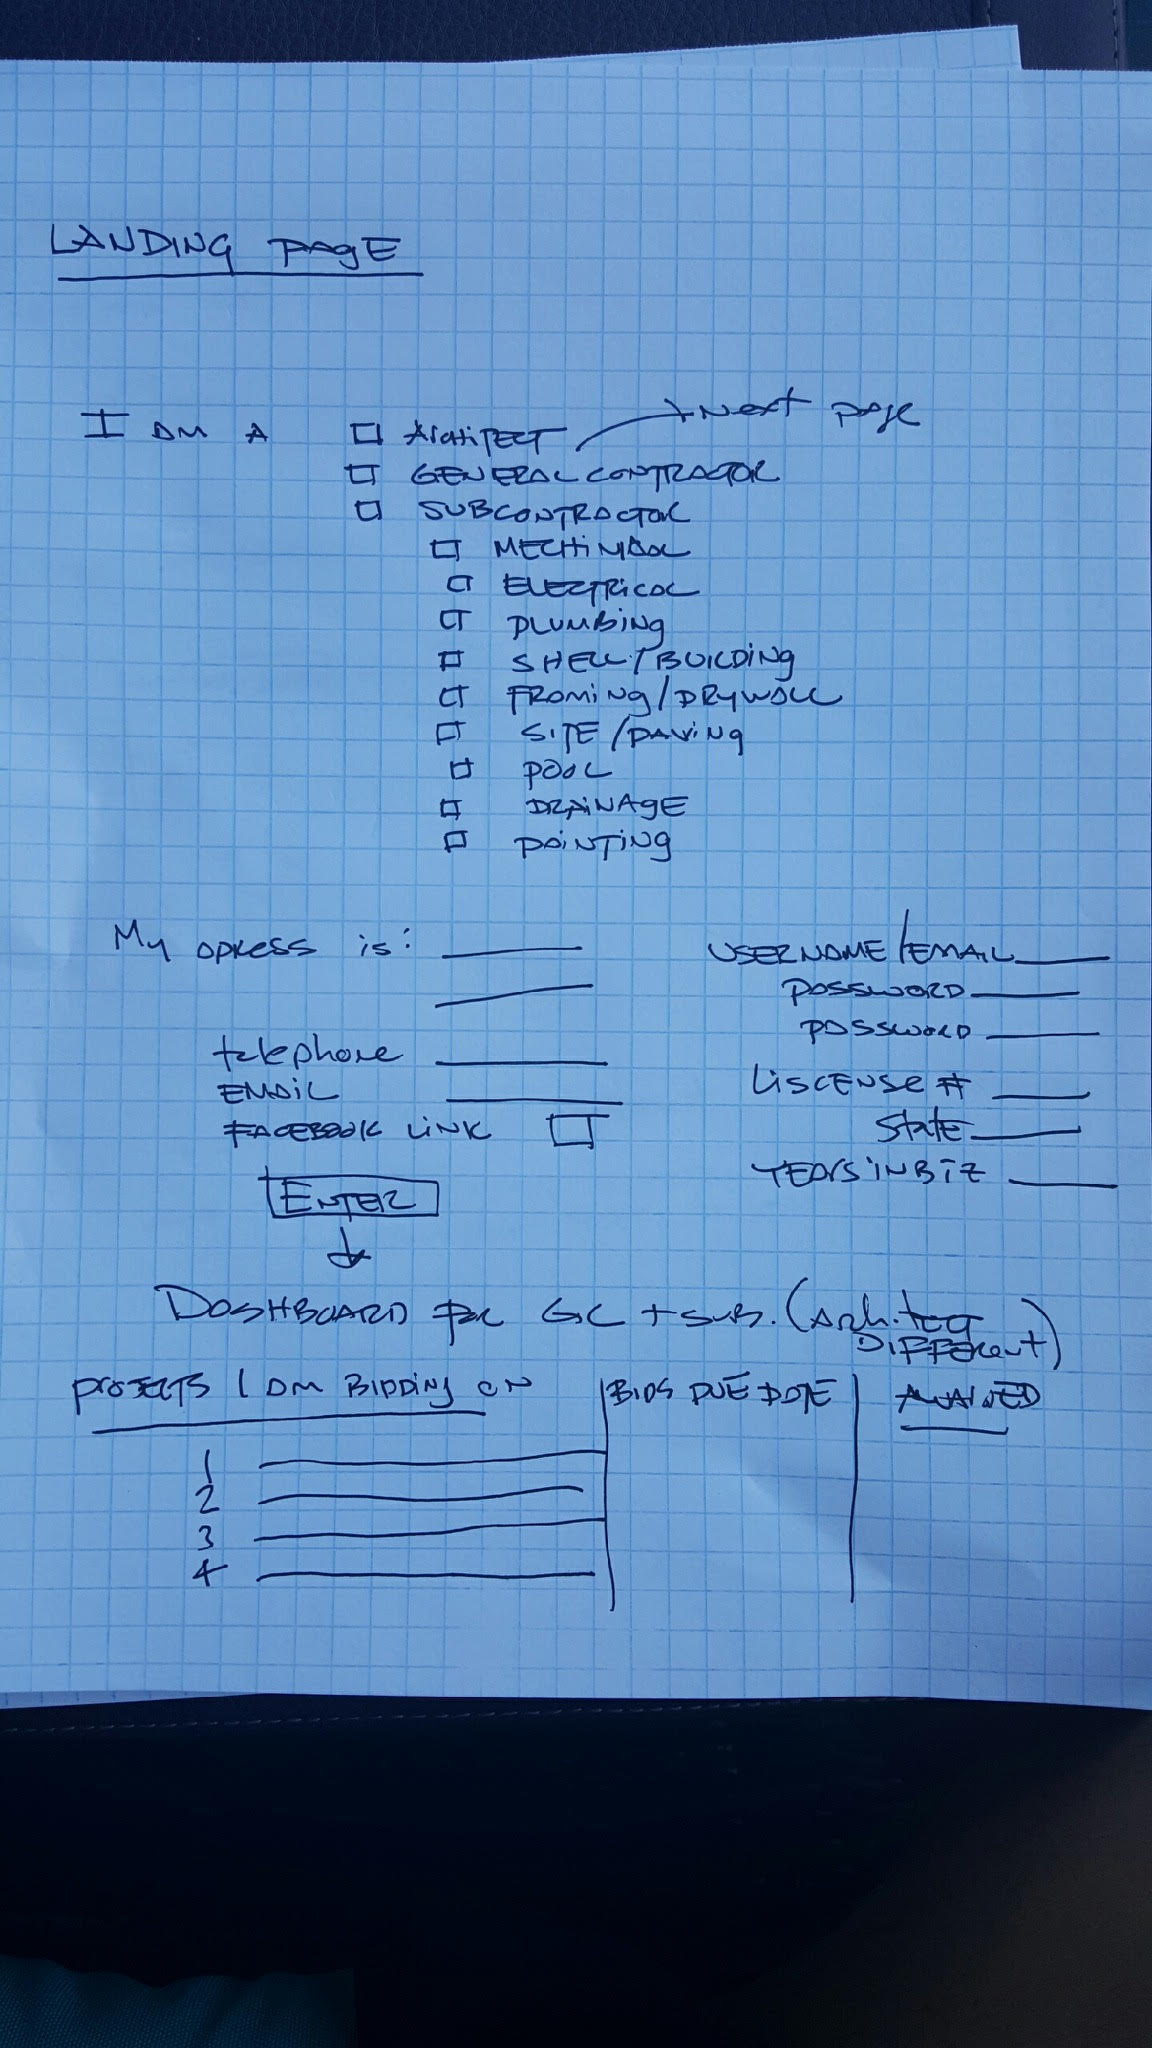 LANDING PAGE
I AM A
ARCHITECT
Next page
GENERAL CONTRACTOR
SUBCONTRACTOR
MECHINAAL
ELECTRICAL
PLUMBING
SHELL/BUILDING
FRAMING/DRYWALL
SITE/PAVING
POOL
DRAINAGE
PAINTING
My ADRESS is:
telephone
EMAIL
FACEBOOK LINK
ENTER
USERNAME/EMAIL
PASSWORD
PASSWORD
LISCENSE #
State
YEARS IN BIZ
DASHBOARD FOR GC + SUB. (Architect
DIFFERENT)
PROJECTS I AM BIDDING ON
BIDS DUE DATE
1
2
3
4